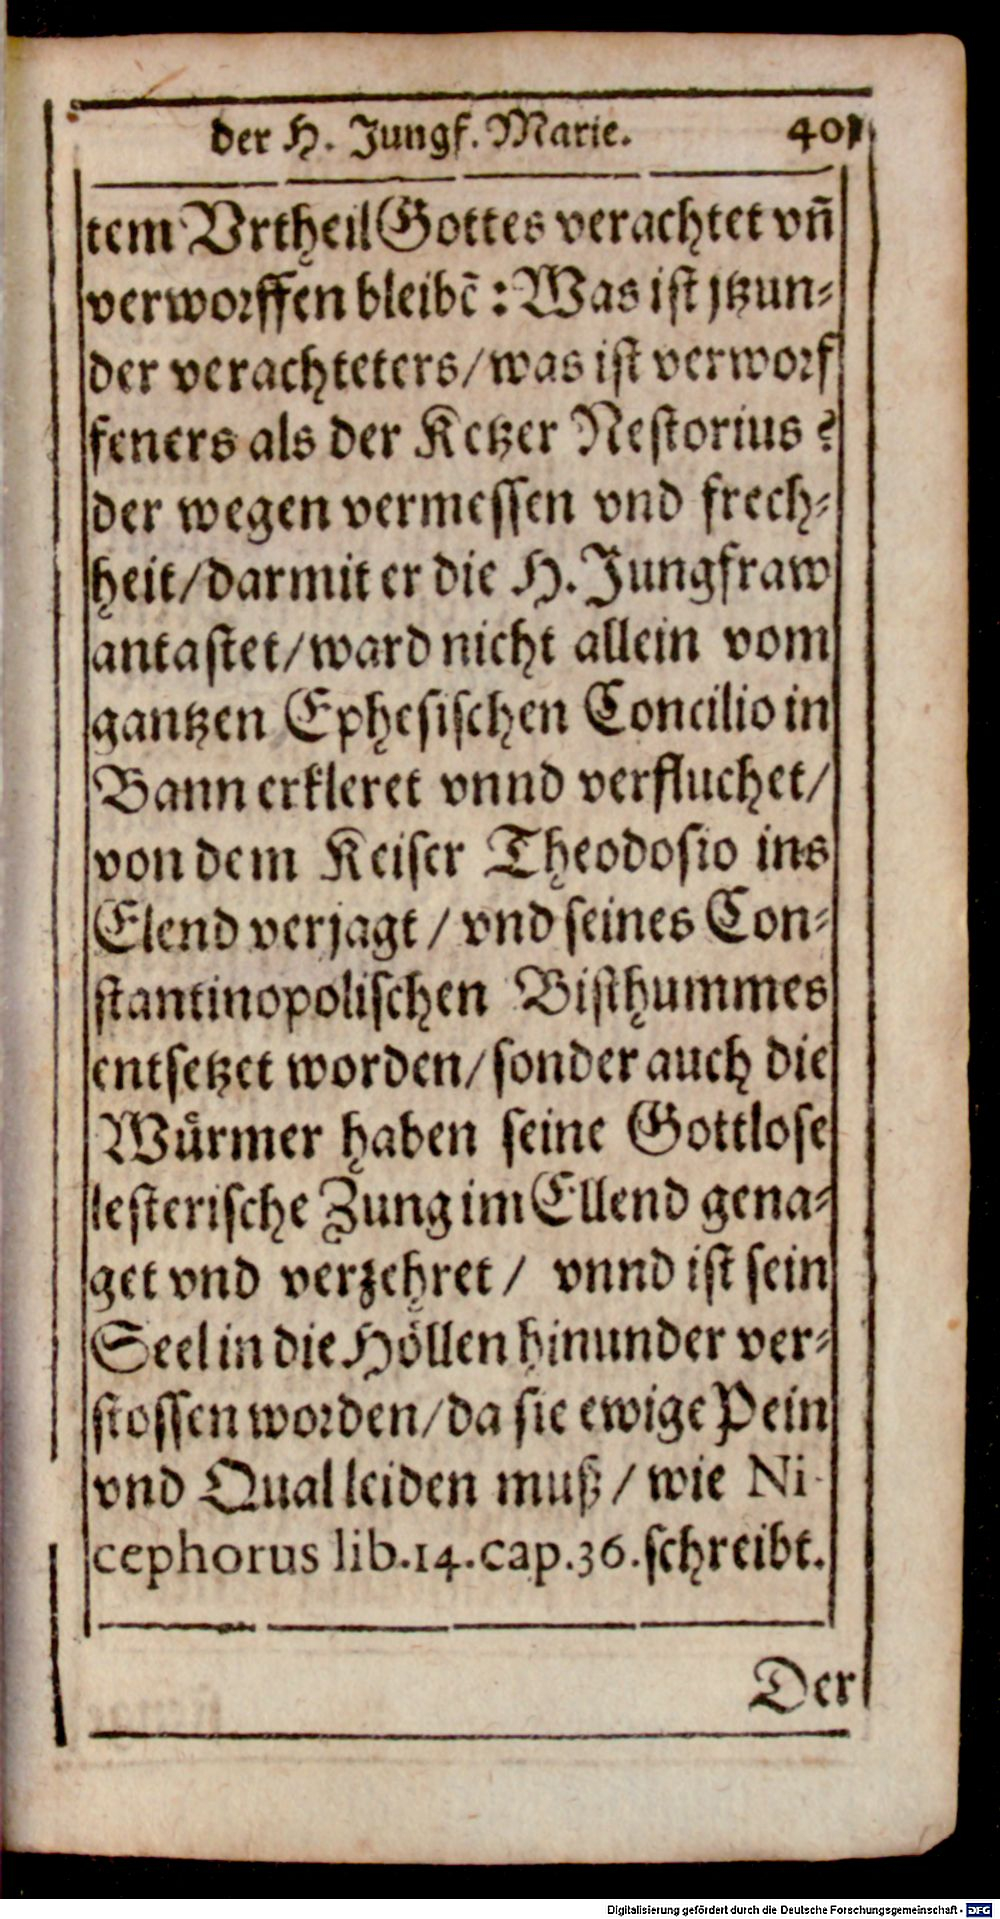 der H. Jungf. Marie. 401
tem Vrtheil Gottes verachtet vn̄
verworffen bleibē : Was ist jtzun⸗
der verachteters/was ist verworf
feners als der Ketzer Nestorius ?
der wegen vermessen vnd frech⸗
heit/darmit er die H. Jungfraw
antastet/ward nicht allein vom
gantzen Ephesischen Concilio in
Bann erkleret vnnd verfluchet/
von dem Keiser Theodosio ins
Elend verjagt / vnd seines Con⸗
stantinopolischen Bisthummes
entsetzet worden/sonder auch die
Würmer haben seine Gottlose
lesterische Zung im Ellend gena⸗
get vnd verzehret / vnnd ist sein
Seel in die Höllen hinunder ver⸗
stossen worden/da sie ewige Pein
vnd Qual leiden muß / wie Ni-
cephorus lib.14.cap.36.schreibt.
Der
Digitalisierung gefördert durch die Deutsche Forschungsgemeinschaft - DFG